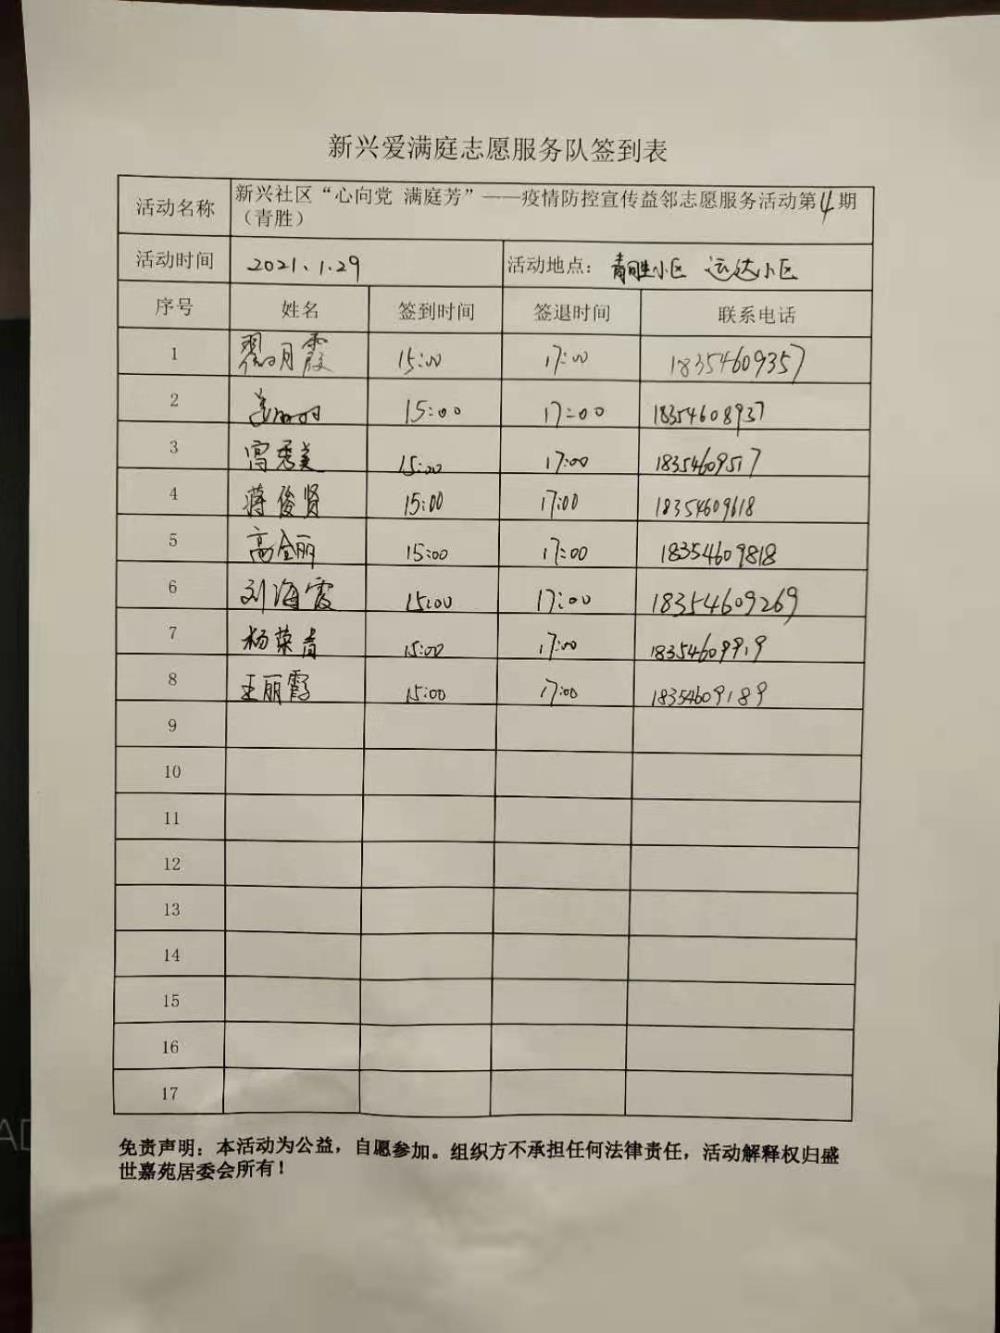 新兴爱满庭志愿服务队签到表
活动名称 新兴社区“心向党 满庭芳”——疫情防控宣传益邻志愿服务活动第4期
（青胜）
活动时间 2021.1.29 活动地点： 小区 运达小区
序号 姓名 签到时间 签退时间 联系电话
1 翟明霞 15:00 17:00 18354609357
2 15:00 17:00 18354608937
3 秀美 15:00 17:00 18354609517
4 蒋俊贤 15:00 17:00 18354609618
5 高全丽 15:00 17:00 18354609818
6 刘海霞 15:00 17:00 18354609269
7 杨荣青 15:00 17:00 18354609919
8 王丽霞 15:00 17:00 18354609189
9
10
11
12
13
14
15
16
17
免责声明：本活动为公益，自愿参加。组织方不承担任何法律责任，活动解释权归盛
世嘉苑居委会所有！